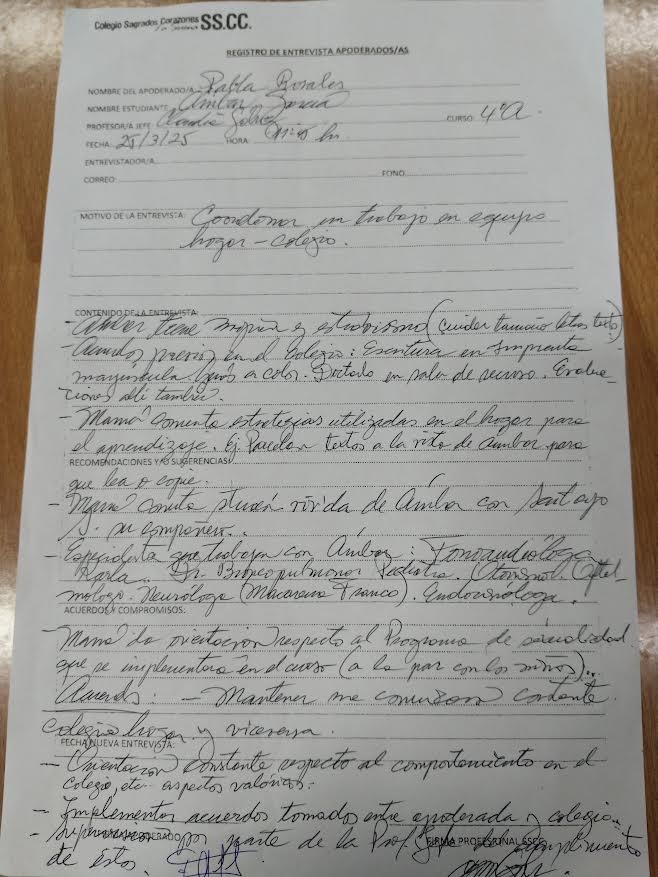 Colegio Sagrados Corazones SS.CC.
La Serena
REGISTRO DE ENTREVISTA APODERADOS/AS
NOMBRE DEL APODERADO/A: Pabla Rosales
NOMBRE ESTUDIANTE: Ámbar García
PROFESOR/A JEFE: Claudia CURSO: 4°A.
FECHA: 25/3/25 HORA: 11:45 hr
ENTREVISTADOR/A
CORREO: FONO
MOTIVO DE LA ENTREVISTA: Coordinar un trabajo en equipo
hogar - colegio.
CONTENIDO DE LA ENTREVISTA:
- Ámbar tiene miopía y estrabismo (cuidar tamaño letras texto)
- Acuerdos previos en el colegio: Escritura en Imprenta
mayúscula. a color. Dictado en sala de recurso. Evalua-
ciones allí también.
- Mamá comenta estrategias utilizadas en el hogar para
el aprendizaje. Ej. textos a la vista de Ámbar para
RECOMENDACIONES Y/O SUGERENCIAS:
que lea o copie.
- Mamá comenta situación vivida de Ámbar con Santiago
S. su compañero.
- Especialistas que trabajan con Ámbar: Fonoaudióloga
Karla. Dr. Broncopulmonar Pediatra. Oftal-
mólogo. Neuróloga (Macarena Franco). Endocrinóloga.
ACUERDOS Y COMPROMISOS:
Mamá da orientación respecto al Programa de sexualidad
que se implementará en el curso (a la par con los niños)..
Acuerdos: - Mantener una constante
colegio hogar y viceversa.
FECHA NUEVA ENTREVISTA:
- Orientación constante respecto al comportamiento en el
colegio, etc. aspectos valóricos.
- Implementar acuerdos tomados entre apoderada y colegio.
- Supervisión por parte de la Prof. Jefe del cumplimiento
FIRMA PROFESIONAL SSCC
de éstos.